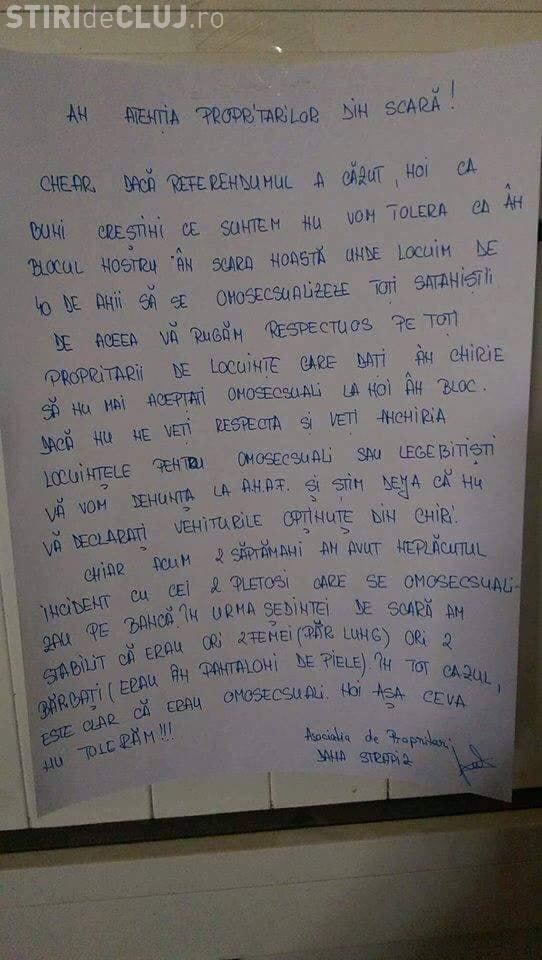 STIRIdeCLUJ.ro
ÂN ATENȚIA PROPRITARILOR DIN SCARĂ!
CHEAR DACĂ REFERENDUMUL A CĂZUT, NOI CA
BUNI CREȘTINI CE SUNTEM NU VOM TOLERA CA ÂN
BLOCUL NOSTRU ÂN SCARA NOASTĂ UNDE LOCUIM DE
40 DE ANII SĂ SE OMOSECSUALIZEZE TOȚI SATANIȘTII
DE ACEEA VĂ RUGĂM RESPECTUOS PE TOȚI
PROPRITARII DE LOCUINTE CARE DATI ÂN CHIRIE
SĂ NU MAI ACEPTATI OMOSECSUALI LA NOI ÂN BLOC.
DACĂ NU NE VEȚI RESPECTA SI VETI ÂNCHIRIA
LOCUINȚELE PENTRU OMOSECSUALI SAU LEGEBITIȘTI
VĂ VOM DENUNȚA LA A.N.A.F. ȘI STIM DEJA CĂ NU
VĂ DECLARAȚI VENITURILE OPȚINUTE DIN CHIRI.
CHIAR ACUM 2 SĂPTĂMANI AM AVUT NEPLĂCUTUL
INCIDENT CU CEI 2 PLETOSI CARE SE OMOSECSUALI-
ZAU PE BANCĂ. ÎN URMA ȘEDINȚEI DE SCARĂ AM
STABILIT CĂ ERAU ORI 2 FEMEI (PĂR LUNG) ORI 2
BĂRBAȚI (ERAU ÂN PANTALONI DE PIELE). ÎN TOT CAZUL,
ESTE CLAR CĂ ERAU OMOSECSUALI. NOI AȘA CEVA
NU TOLERĂM!!!
Asociatia de Propritari